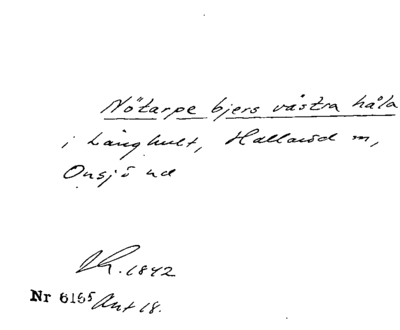 Nötarpe bjers västra håla
i Långhult, Hallaröd sn,
Onsjö hd
Lk. 1842
Nr 6165 Ant 18.